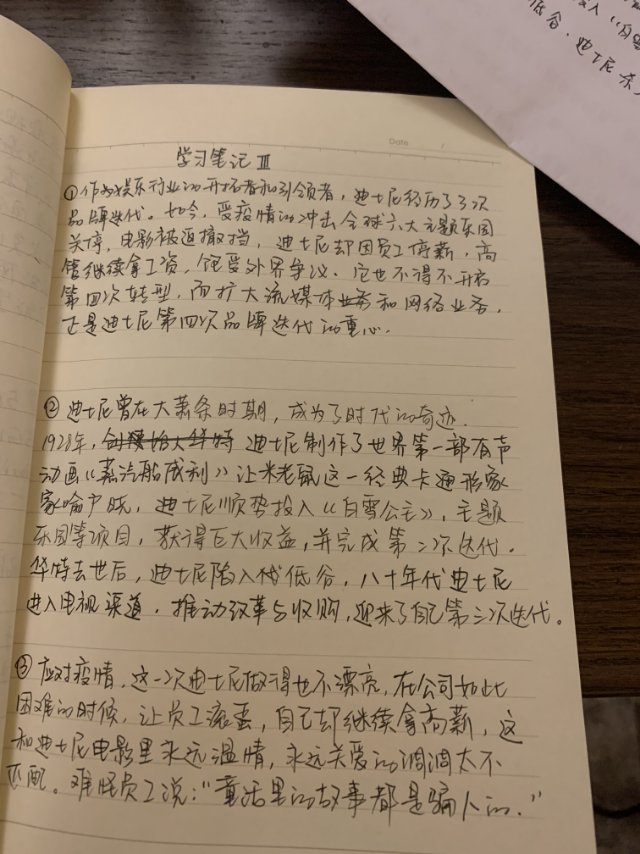 低谷，迪士尼
Date /
学习笔记 III
①作为娱乐行业的开拓者和引领者，迪士尼经历了3次
品牌迭代。如今，受疫情的冲击全球六大主题乐园
关停，电影被迫撤挡，迪士尼却因员工停薪，高
管继续拿工资，饱受外界争议。它也不得不开启
第四次转型，而扩大流媒体业务和网络业务，
正是迪士尼第四次品牌迭代的重心.
②迪士尼曾在大萧条时期，成为了时代的奇迹.
1928年，迪士尼制作了世界第一部有声
动画《蒸汽船威利》让米老鼠这一经典卡通形象家
家喻户晓，迪士尼顺势投入《白雪公主》，主题
乐园等项目，获得巨大收益，并完成第二次迭代.
华特去世后，迪士尼陷入低谷，八十年代迪士尼
进入电视渠道，推动改革与收购，迎来了自己第三次迭代。
③应对疫情，这一次迪士尼做得也不漂亮，在公司如此
困难的时候，让员工滚蛋，自己却继续拿高薪，这
和迪士尼电影里永远温情，永远关爱的调调太不
匹配。难怪员工说："童话里的故事都是骗人的."